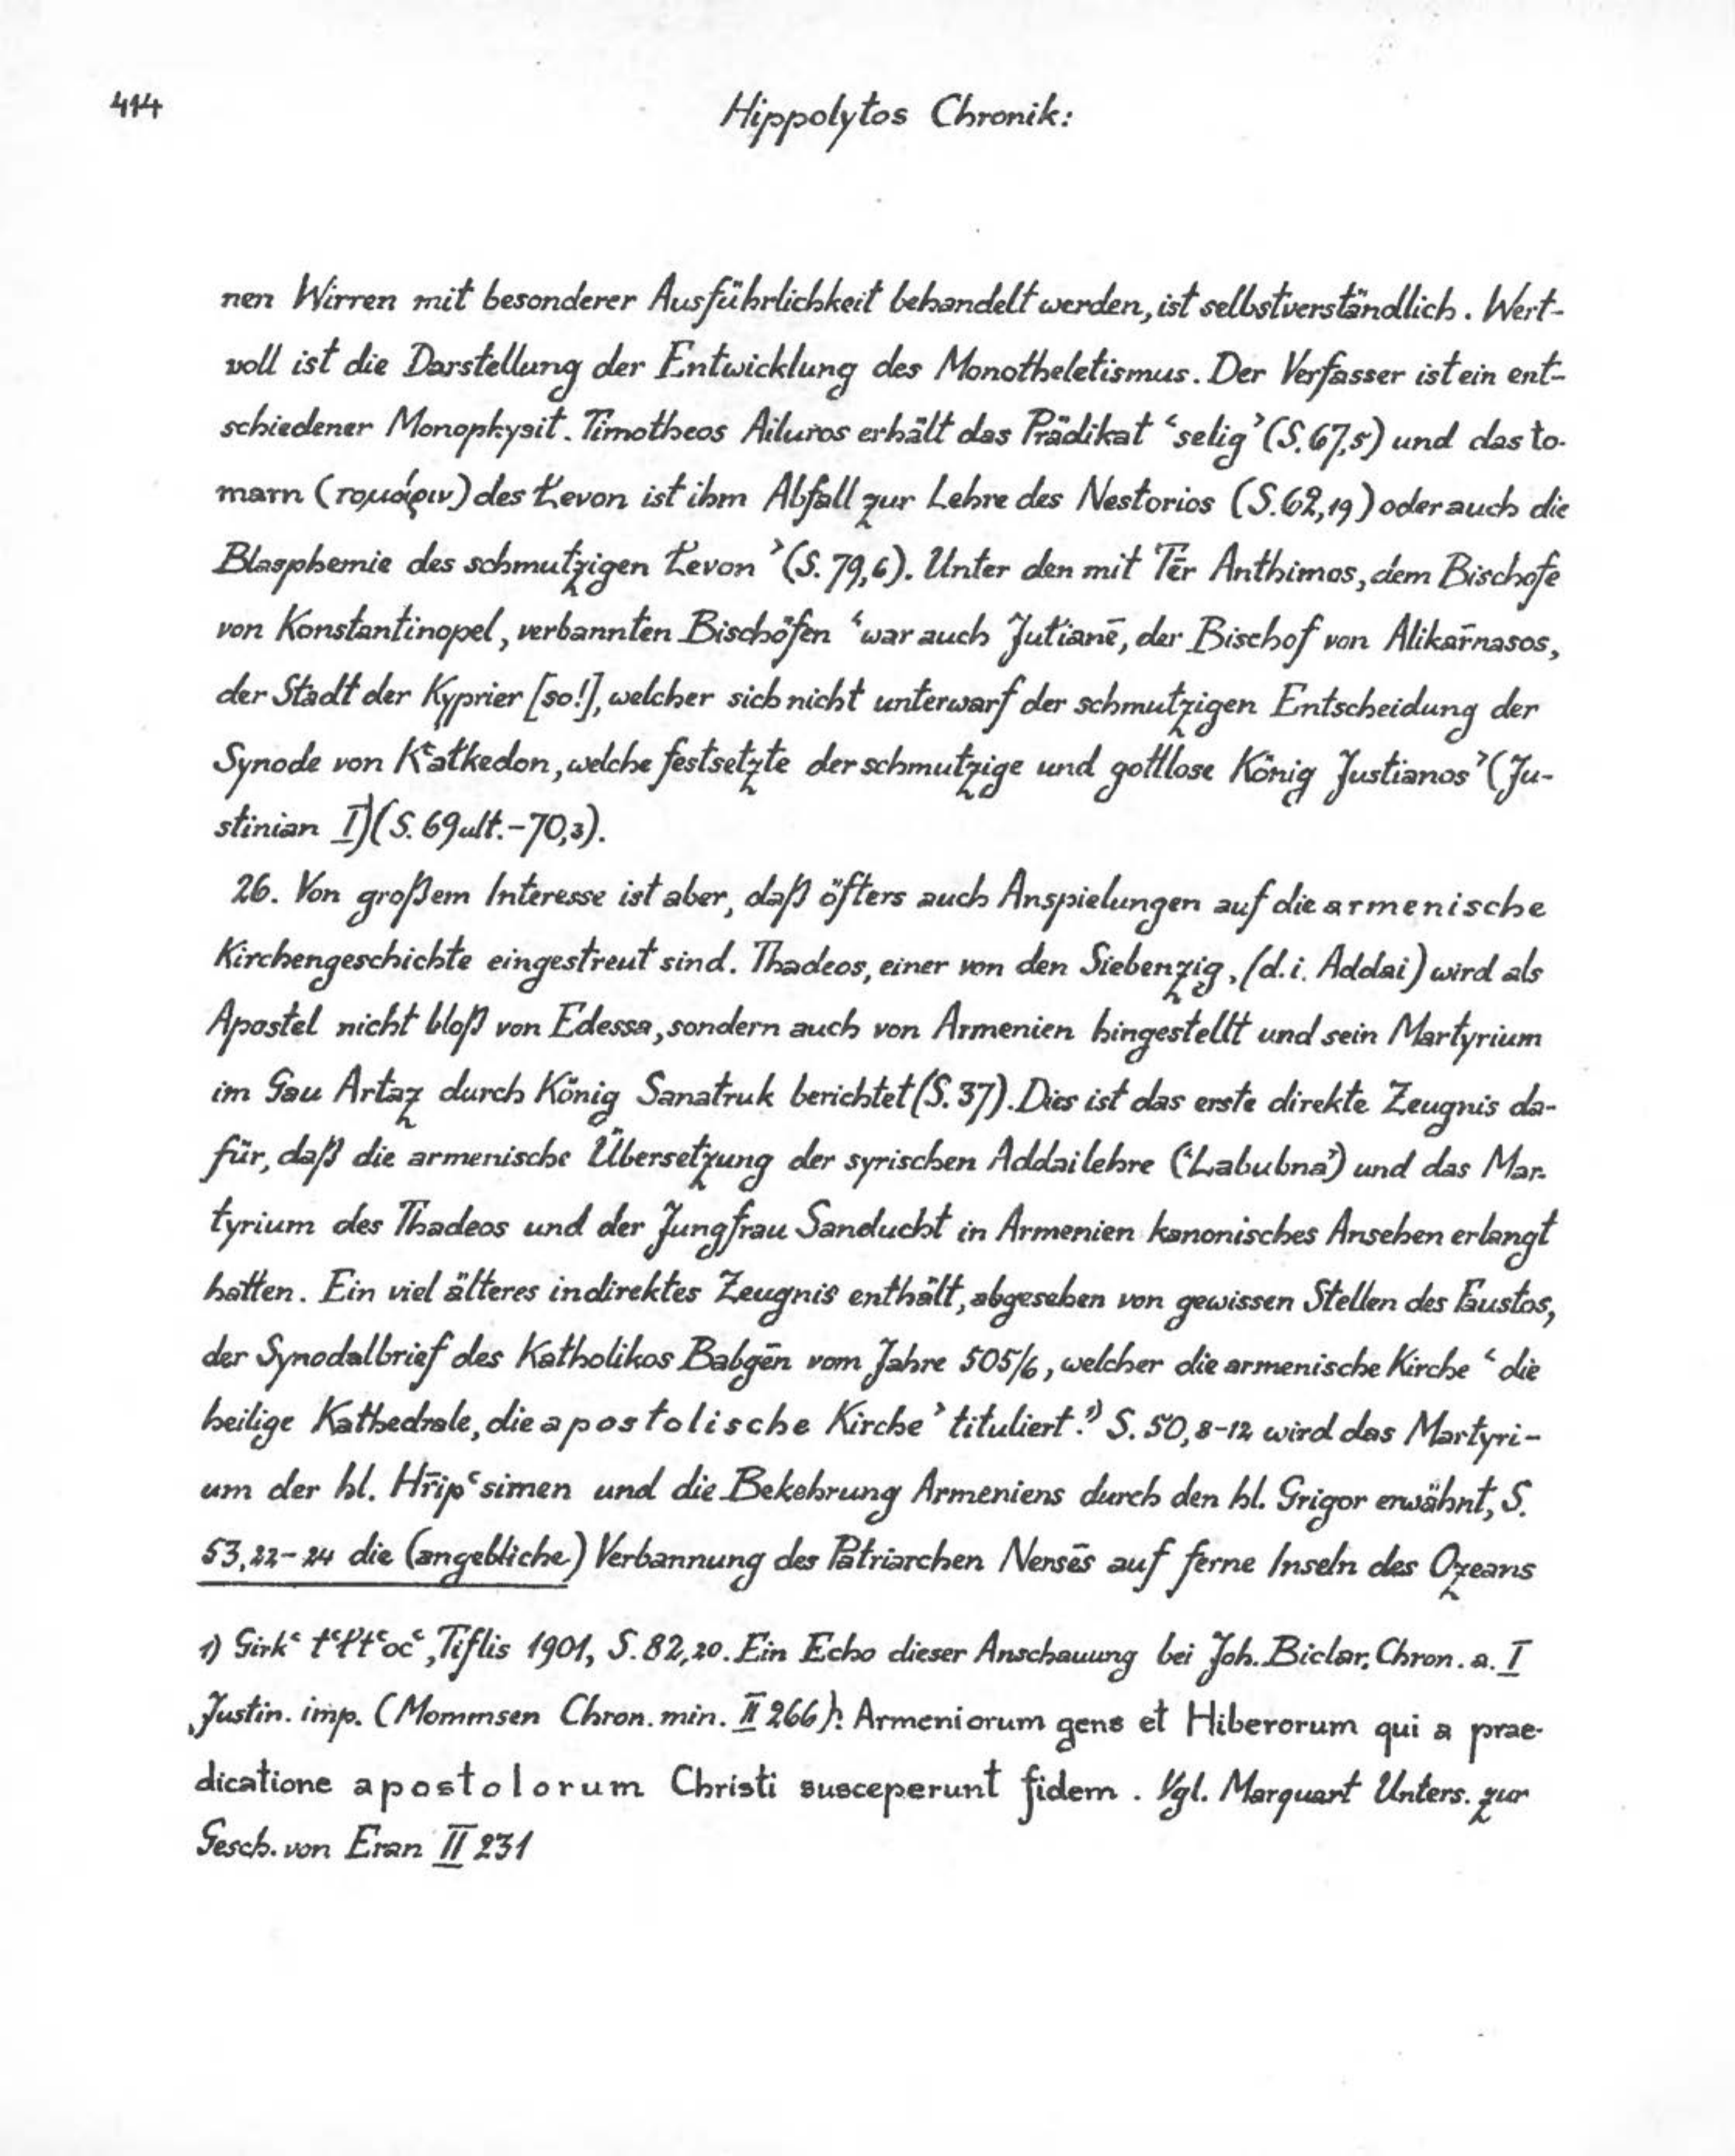 414
Hippolytos Chronik:
nen Wirren mit besonderer Ausführlichkeit behandelt werden, ist selbstverständlich. Wert-
voll ist die Darstellung der Entwicklung des Monotheletismus. Der Verfasser ist ein ent-
schiedener Monophysit. Timotheos Ailuros erhält das Prädikat ‘selig’ (S. 67,5) und das to-
marn (τομάριν) des Łevon ist ihm Abfall zur Lehre des Nestorios (S. 62,19) oder auch die
Blasphemie des schmutzigen Łevon’ (S. 79,6). Unter den mit Tēr Anthimos, dem Bischofe
von Konstantinopel, verbannten Bischöfen ‘war auch Jułianē, der Bischof von Alikaṙnasos,
der Stadt der Kyprier [so!], welcher sich nicht unterwarf der schmutzigen Entscheidung der
Synode von Kʿałkedon, welche festsetzte der schmutzige und gottlose König Justianos’ (Ju-
stinian I) (S. 69 ult.-70,3).
26. Von großem Interesse ist aber, daß öfters auch Anspielungen auf die armenische
Kirchengeschichte eingestreut sind. Thadeos, einer von den Siebenzig, (d.i. Addai) wird als
Apostel nicht bloß von Edessa, sondern auch von Armenien hingestellt und sein Martyrium
im Gau Artaz durch König Sanatruk berichtet (S. 37). Dies ist das erste direkte Zeugnis da-
für, daß die armenische Übersetzung der syrischen Addailehre (‘Labubna’) und das Mar-
tyrium des Thadeos und der Jungfrau Sanducht in Armenien kanonisches Ansehen erlangt
hatten. Ein viel älteres indirektes Zeugnis enthält, abgesehen von gewissen Stellen des Faustos,
der Synodalbrief des Katholikos Babgēn vom Jahre 505/6, welcher die armenische Kirche ‘die
heilige Kathedrale, die apostolische Kirche’ tituliert.¹⁾ S. 50,8-12 wird das Martyri-
um der hl. Hṙipʿsimen und die Bekehrung Armeniens durch den hl. Grigor erwähnt, S.
53,22-24 die (angebliche) Verbannung des Patriarchen Nersēs auf ferne Inseln des Ozeans
1) Girkʿ tʿłtʿocʿ, Tiflis 1901, S. 82,20. Ein Echo dieser Anschauung bei Joh. Biclar. Chron. a. I
Justin. imp. (Mommsen Chron. min. II 266): Armeniorum gens et Hiberorum qui a prae-
dicatione apostolorum Christi susceperunt fidem. Vgl. Marquart Unters. zur
Gesch. von Eran II 231